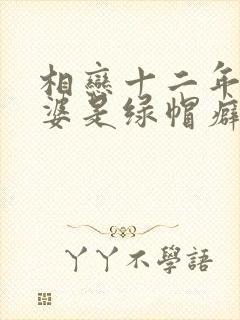 相戀十二年
婆是绿帽癖
丫丫不學語